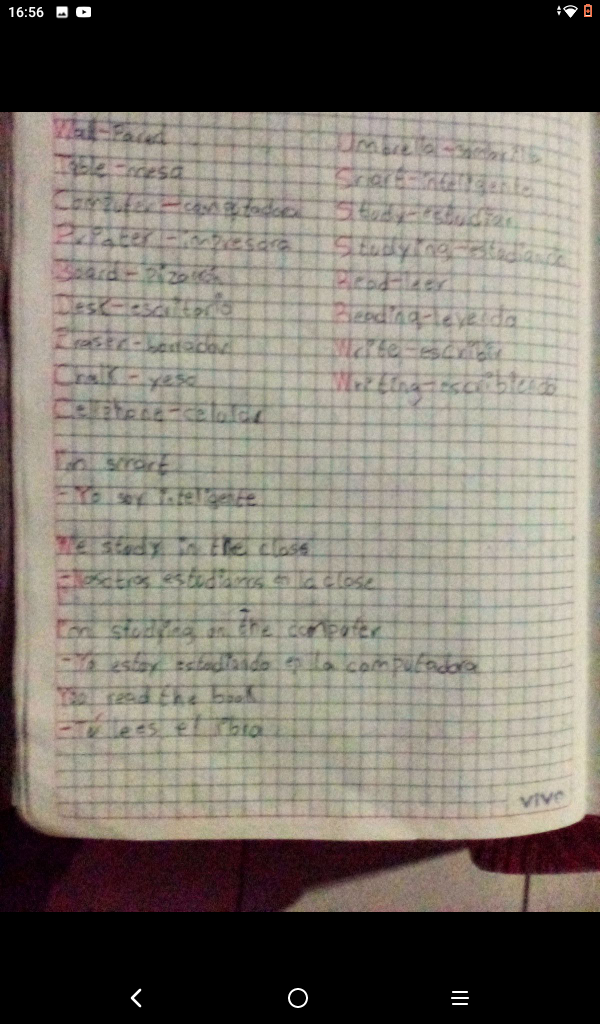 16:56
Wall-Pared
Table-mesa
Computer-computadora
Printer-impresora
Board-pizarrón
Desk-escritorio
Eraser-borrador
Chalk-yeso
Cellphone-celular
Umbrella-sombrilla
Smart-inteligente
Study-estudiar
Studying-estudiando
Read-leer
Reading-leyendo
Write-escribir
Writing-escribiendo
I'm smart
-Yo soy inteligente
We study in the class
-Nosotros estudiamos en la clase
I'm studying on the computer
-Yo estoy estudiando en la computadora
You read the book
-Tú lees el libro
vivo